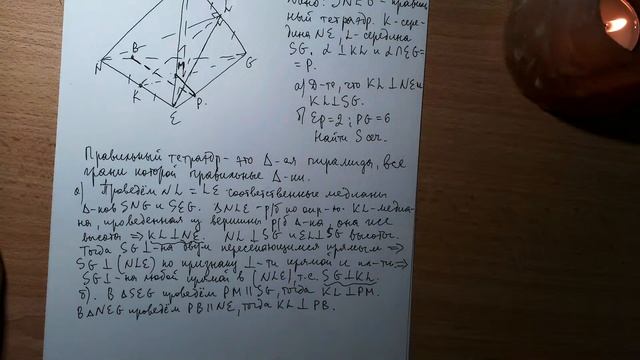 Дано: SNEG – правиль-
ный тетраэдр. K-сере-
дина NE, L-середина
SG. α ⊥ KL и α∩EG=
= P.
а) Д-те, что KL⊥NE и
KL⊥SG.
б) EP=2; PG=6
Найти S сеч.
N
B
M
L
G
K
P.
E
Правильный тетраэдр – это Δ-ая пирамида, все
грани которой правильные Δ-ки.
а) Проведём NL = LE соответственные медианы
Δ-ков SNG и SEG. ΔNLE – р/б по опр-ю. KL-медиа-
на, проведенная из вершины р/б Δ-ка, она же
высота ⇒ KL⊥NE. NL⊥SG и EL⊥SG высоты.
Тогда SG⊥-на двум пересекающимся прямым ⇒
SG⊥(NLE) по признаку ⊥-ти прямой и пл-ти ⇒
SG⊥-на любой прямой в (NLE), т.е. SG⊥KL.
б). В ΔSEG проведём PM||SG, тогда KL⊥PM.
В ΔNEG проведём PB||NE, тогда KL⊥PB.